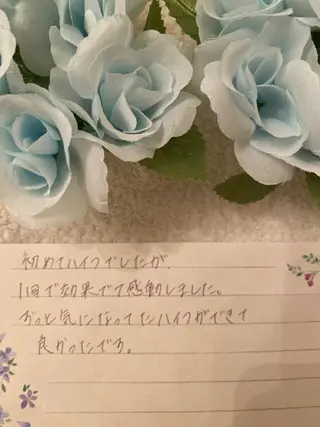 初めてハイフでしたが、
1回で効果でて感動しました。
ずっと気になってたハイフができて
良かったです。